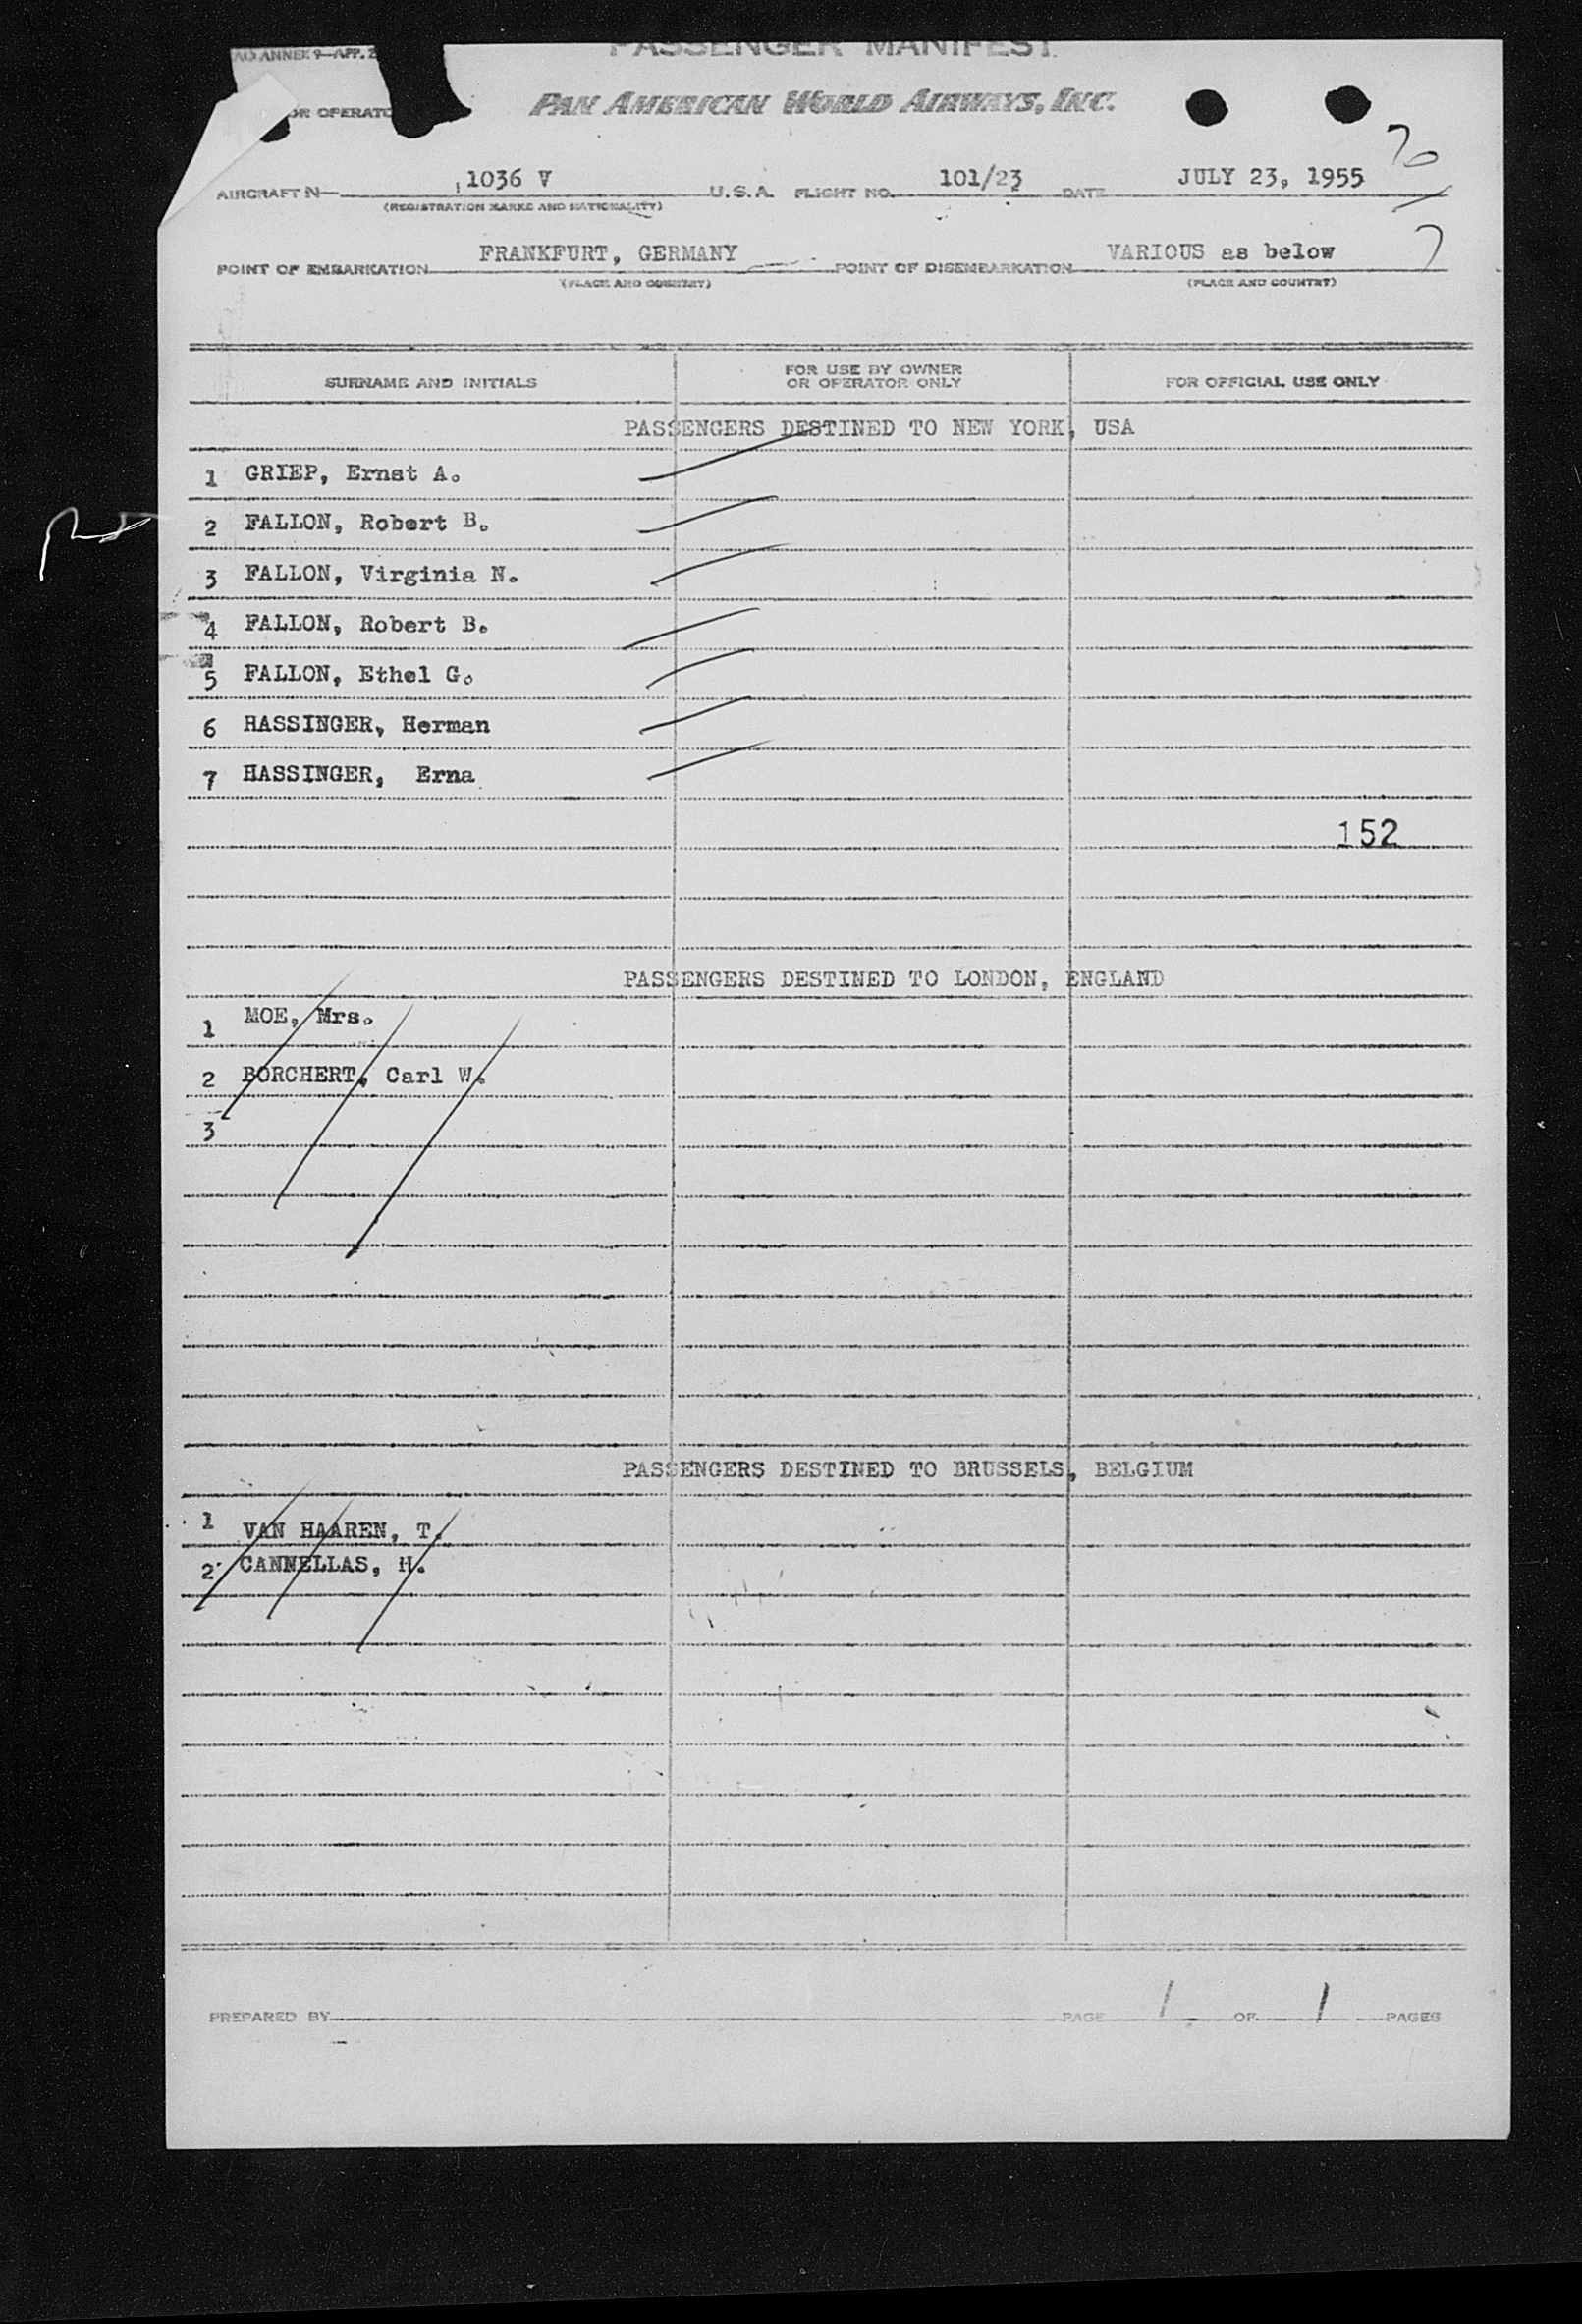 ANNEX 9—APP. 2
PASSENGER MANIFEST
OR OPERATO
PAN AMERICAN WORLD AIRWAYS, INC.
AIRCRAFT N— 1036 V U.S.A. FLIGHT NO. 101/23 DATE JULY 23, 1955
(REGISTRATION MARKS AND NATIONALITY)
POINT OF EMBARKATION FRANKFURT, GERMANY POINT OF DISEMBARKATION VARIOUS as below
(PLACE AND COUNTRY) (PLACE AND COUNTRY)
7
SURNAME AND INITIALS FOR USE BY OWNER OR OPERATOR ONLY FOR OFFICIAL USE ONLY
PASSENGERS DESTINED TO NEW YORK, USA
1 GRIEP, Ernst A.
2 FALLON, Robert B.
3 FALLON, Virginia N.
4 FALLON, Robert B.
5 FALLON, Ethel G.
6 HASSINGER, Herman
7 HASSINGER, Erna
152
PASSENGERS DESTINED TO LONDON, ENGLAND
1 MOE, Mrs.
2 BORCHERT, Carl W.
3
PASSENGERS DESTINED TO BRUSSELS, BELGIUM
1 VAN HAAREN, T.
2 CANNELLAS, H.
PREPARED BY PAGE 1 OF 1 PAGES